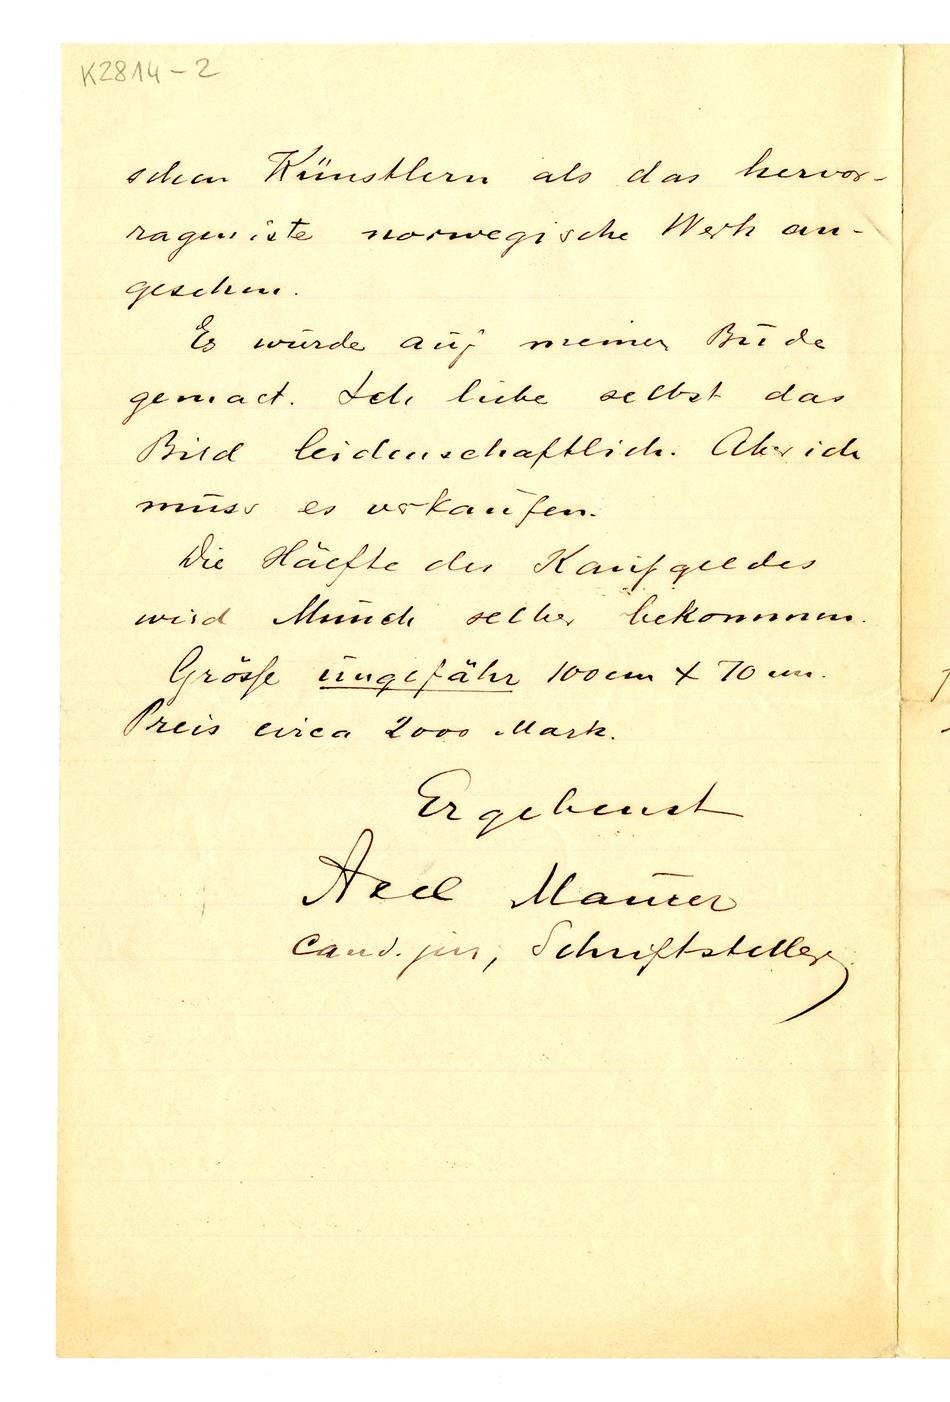 K2814-2
schen Künstlern als das hervor-
ragendste norwegische Werk an-
gesehen.
Es wurde auf meiner Bude
gemact. Ich liebe selbst das
Bild leidenschaftlich. Aber ich
muss es verkaufen.
Die Häefte des Kaufgeldes
wird Munch selber bekommen.
Grösse ungefähr 100 cm X 70 cm.
Preis circa 2000 Mark.
Ergebenst
Axel Maurer
cand. jur, Schriftsteller